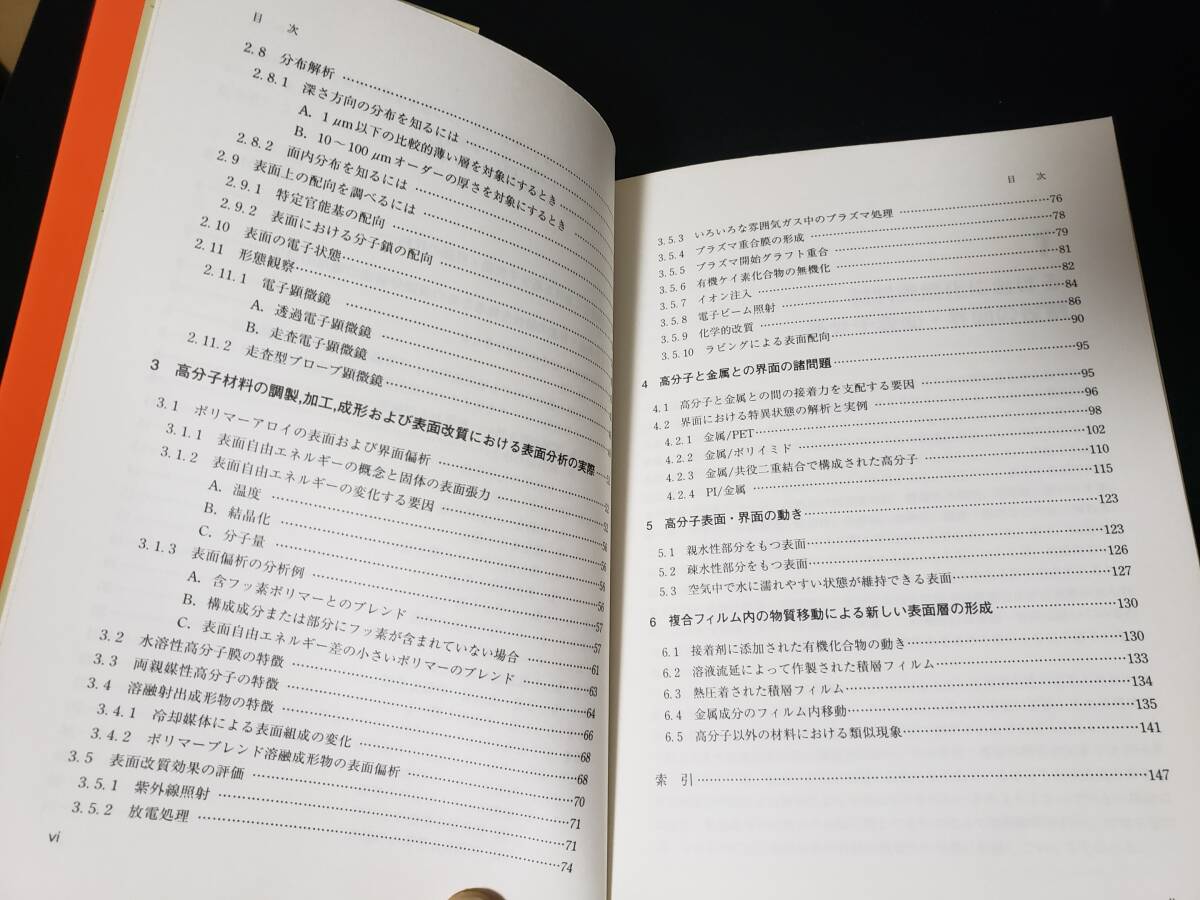 目 次
2.8 分布解析
2.8.1 深さ方向の分布を知るには
A. 1μm以下の比較的薄い層を対象にするとき
B. 10～100μmオーダーの厚さを対象にするとき
2.8.2 面内分布を知るには
2.9 表面上の配向を調べるには
2.9.1 特定官能基の配向
2.9.2 表面における分子鎖の配向
2.10 表面の電子状態
2.11 形態観察
2.11.1 電子顕微鏡
A. 透過電子顕微鏡
B. 走査電子顕微鏡
2.11.2 走査型プローブ顕微鏡
3 高分子材料の調製,加工,成形および表面改質における表面分析の実際……51
3.1 ポリマーアロイの表面および界面偏析……52
3.1.1 表面自由エネルギーの概念と固体の表面張力……52
3.1.2 表面自由エネルギーの変化する要因……56
A. 温度……56
B. 結晶化……56
C. 分子量……56
3.1.3 表面偏析の分析例……57
A. 含フッ素ポリマーとのブレンド……57
B. 構成成分または部分にフッ素が含まれていない場合……61
C. 表面自由エネルギー差の小さいポリマーのブレンド……63
3.2 水溶性高分子膜の特徴……64
3.3 両親媒性高分子の特徴……66
3.4 溶融射出成形物の特徴……68
3.4.1 冷却媒体による表面組成の変化……68
3.4.2 ポリマーブレンド溶融成形物の表面偏析……70
3.5 表面改質効果の評価……71
3.5.1 紫外線照射……71
3.5.2 放電処理……74
vi
目 次
3.5.3 いろいろな雰囲気ガス中のプラズマ処理……76
3.5.4 プラズマ重合膜の形成……78
3.5.5 プラズマ開始グラフト重合……79
3.5.6 有機ケイ素化合物の無機化……81
3.5.7 イオン注入……82
3.5.8 電子ビーム照射……84
3.5.9 化学的改質……86
3.5.10 ラビングによる表面配向……90
4 高分子と金属との界面の諸問題……95
4.1 高分子と金属との間の接着力を支配する要因……95
4.2 界面における特異状態の解析と実例……96
4.2.1 金属/PET……98
4.2.2 金属/ポリイミド……102
4.2.3 金属/共役二重結合で構成された高分子……110
4.2.4 PI/金属……115
5 高分子表面・界面の動き……123
5.1 親水性部分をもつ表面……123
5.2 疎水性部分をもつ表面……126
5.3 空気中で水に濡れやすい状態が維持できる表面……127
6 複合フィルム内の物質移動による新しい表面層の形成……130
6.1 接着剤に添加された有機化合物の動き……130
6.2 溶液流延によって作製された積層フィルム……133
6.3 熱圧着された積層フィルム……134
6.4 金属成分のフィルム内移動……135
6.5 高分子以外の材料における類似現象……141
索 引……147